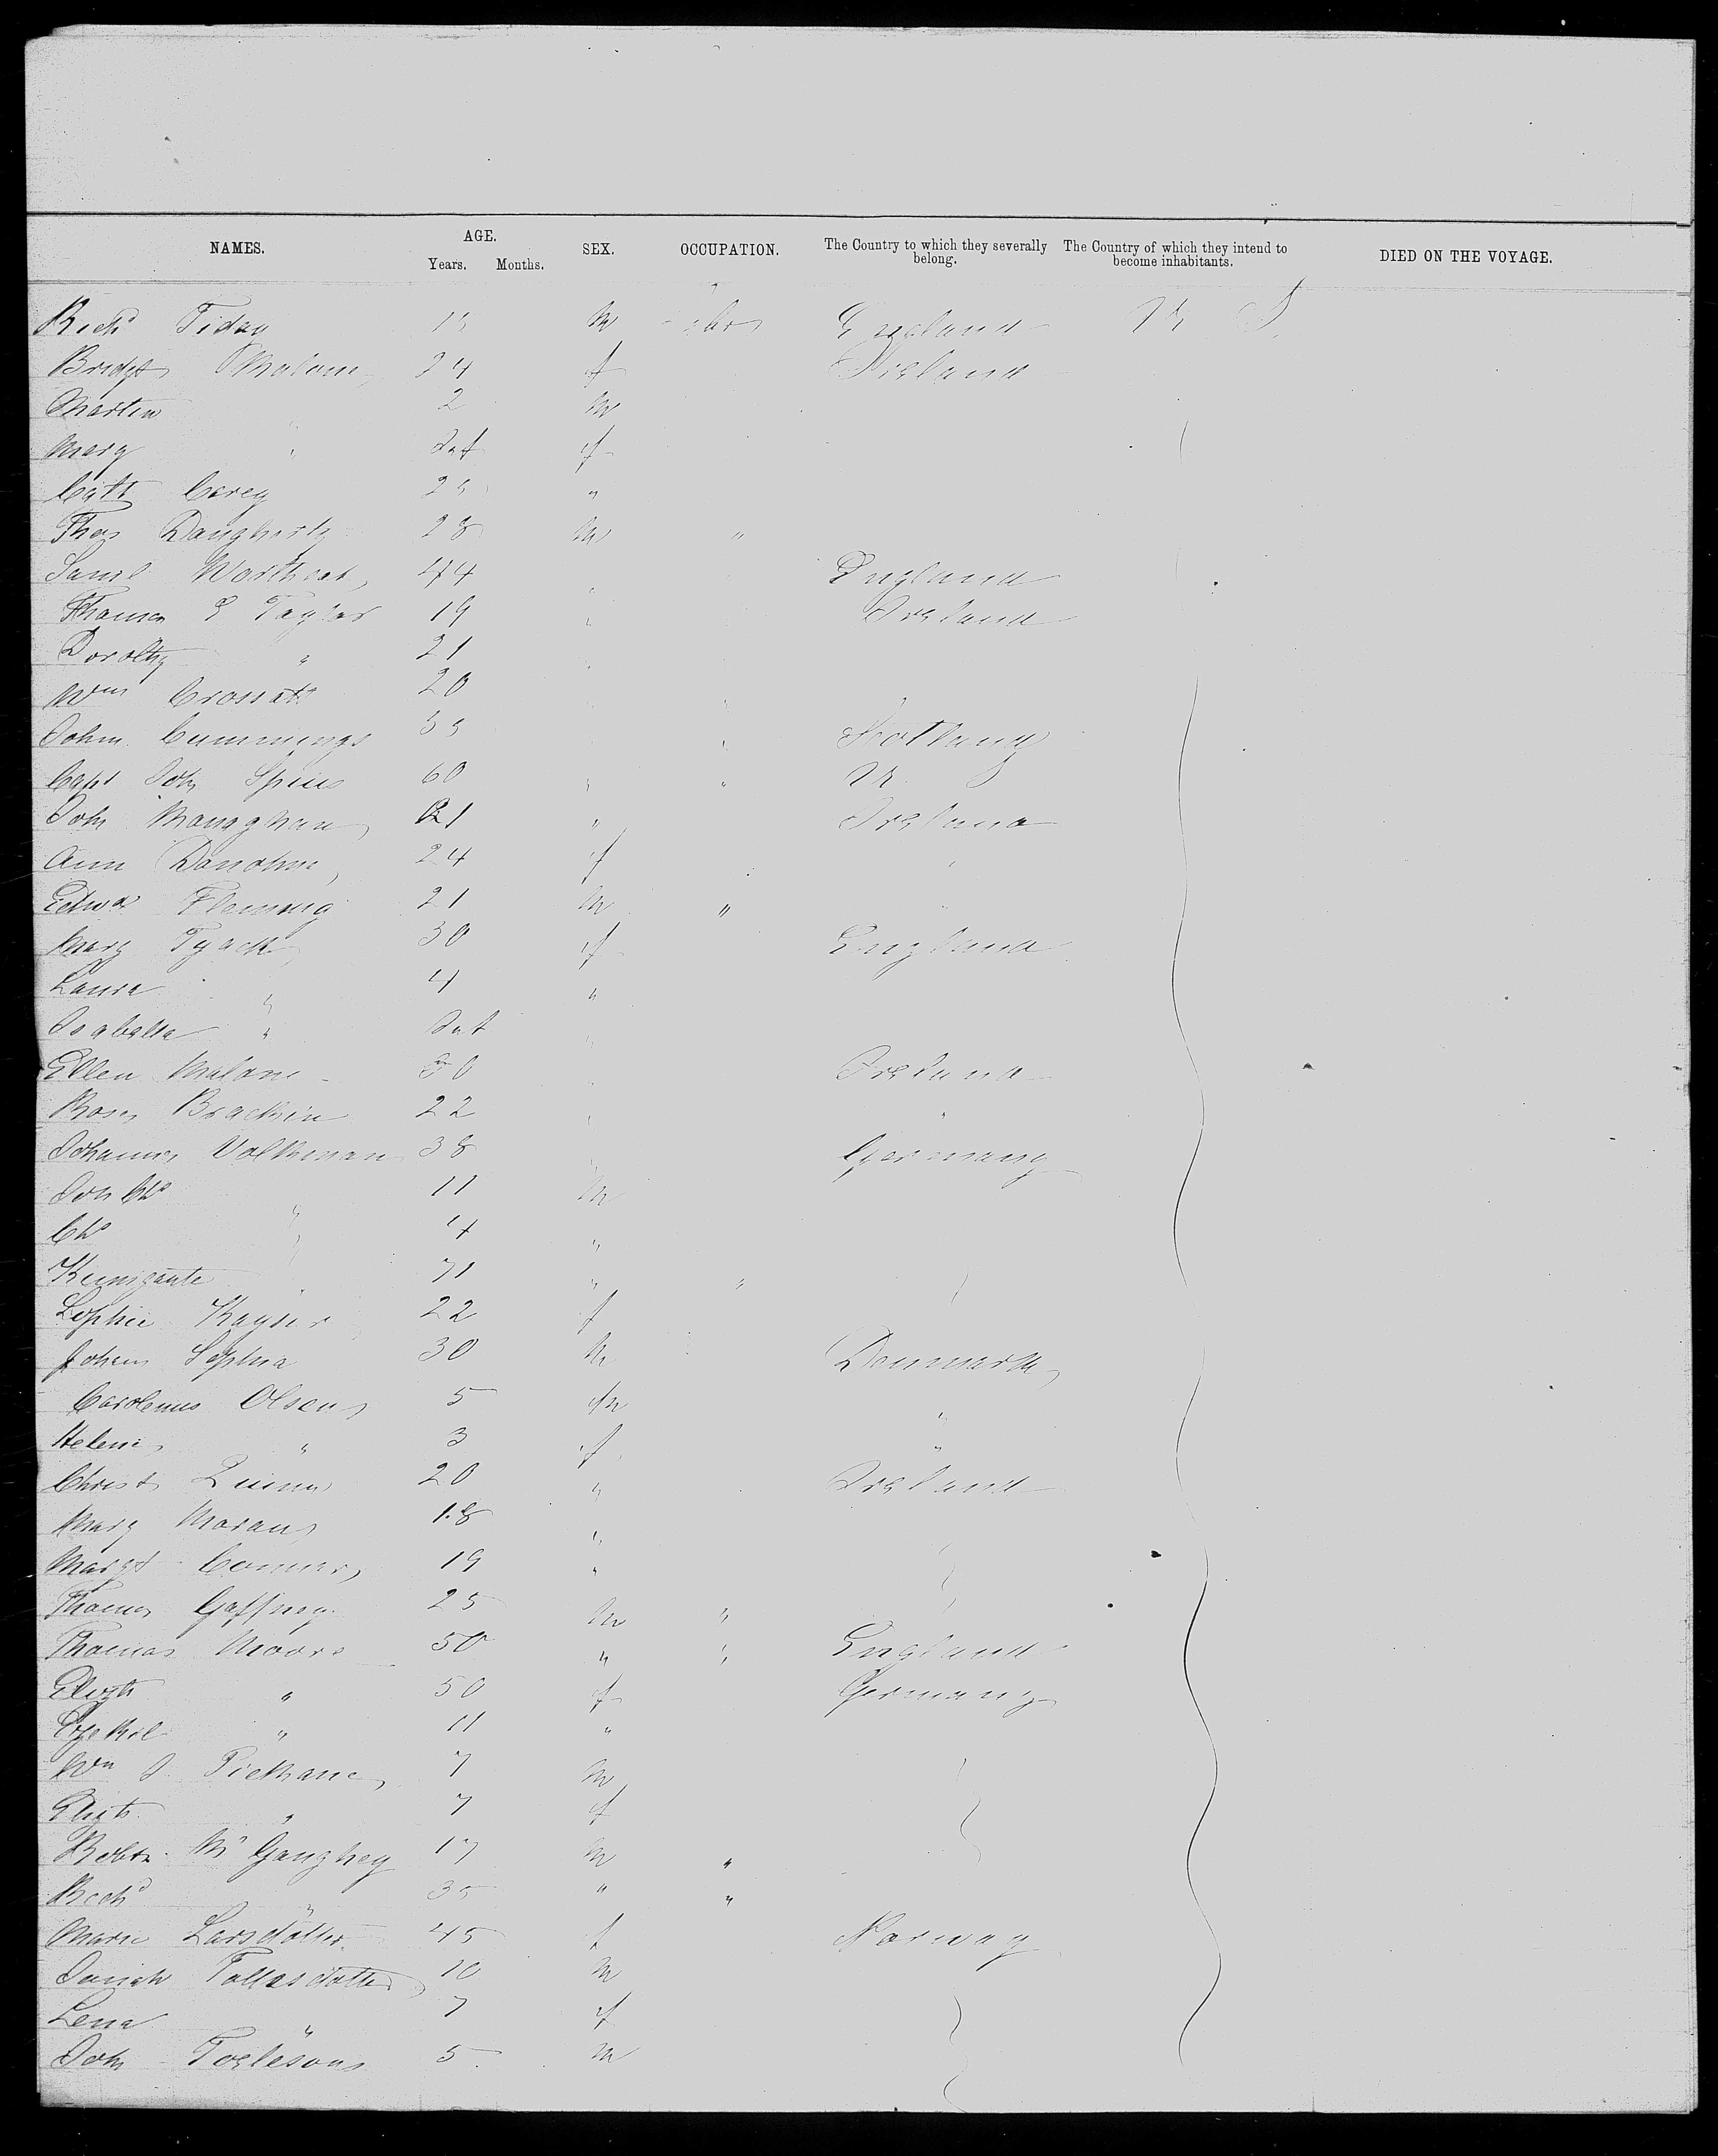 NAMES. AGE. Years. Months. SEX. OCCUPATION. The Country to which they severally belong. The Country of which they intend to become inhabitants. DIED ON THE VOYAGE.
Richd Tiday M England U S
Bridget Malone 24 f Ireland
Martin 2 M
Mary " Inf f
Cath Carey 25 "
Thos Daugherty 28 M "
Saml 44 " England
Thomas E Taylor 19 " Ireland
Dorothy " 21 "
Wm Crossett 20
John Cummings 35 Scotland
Capt Joh Spius 60 " " U S
Joh Monaghan 21 " Ireland
Ann Donohue 24 f "
Edwd Fleming 21 M " "
Mary Tyack 30 f England
Laura " 4 "
Isabella " Inf "
Ellen Malone 30 " Ireland
Rose Brackin 22 " "
Johanna Volkman 38 " Germany
Joh Chs " 11 M
Chs " 4 "
Kunigunte " 71 " "
Sophie Kayser 22 f
Johan Sophia 30 M Denmark
Carolenus Olsen 5 M "
Helene " 3 f "
Christ Quinn 20 " Ireland
Mary Moran 18 "
Margt Conner 19 "
Thomas Gaffney 25 M "
Thomas Moore 50 " " England
Elizth " 50 f Germany
Ezekil " 11 "
Wm J Piekhane 7 M
Elizth " 7 f
Robt McGaughey 17 M "
Richd " 35 " "
Marie Larsdotter 45 f Norway
Tollesdotter 10 M
Lena " 7 f
Joh Tollesons 5 M